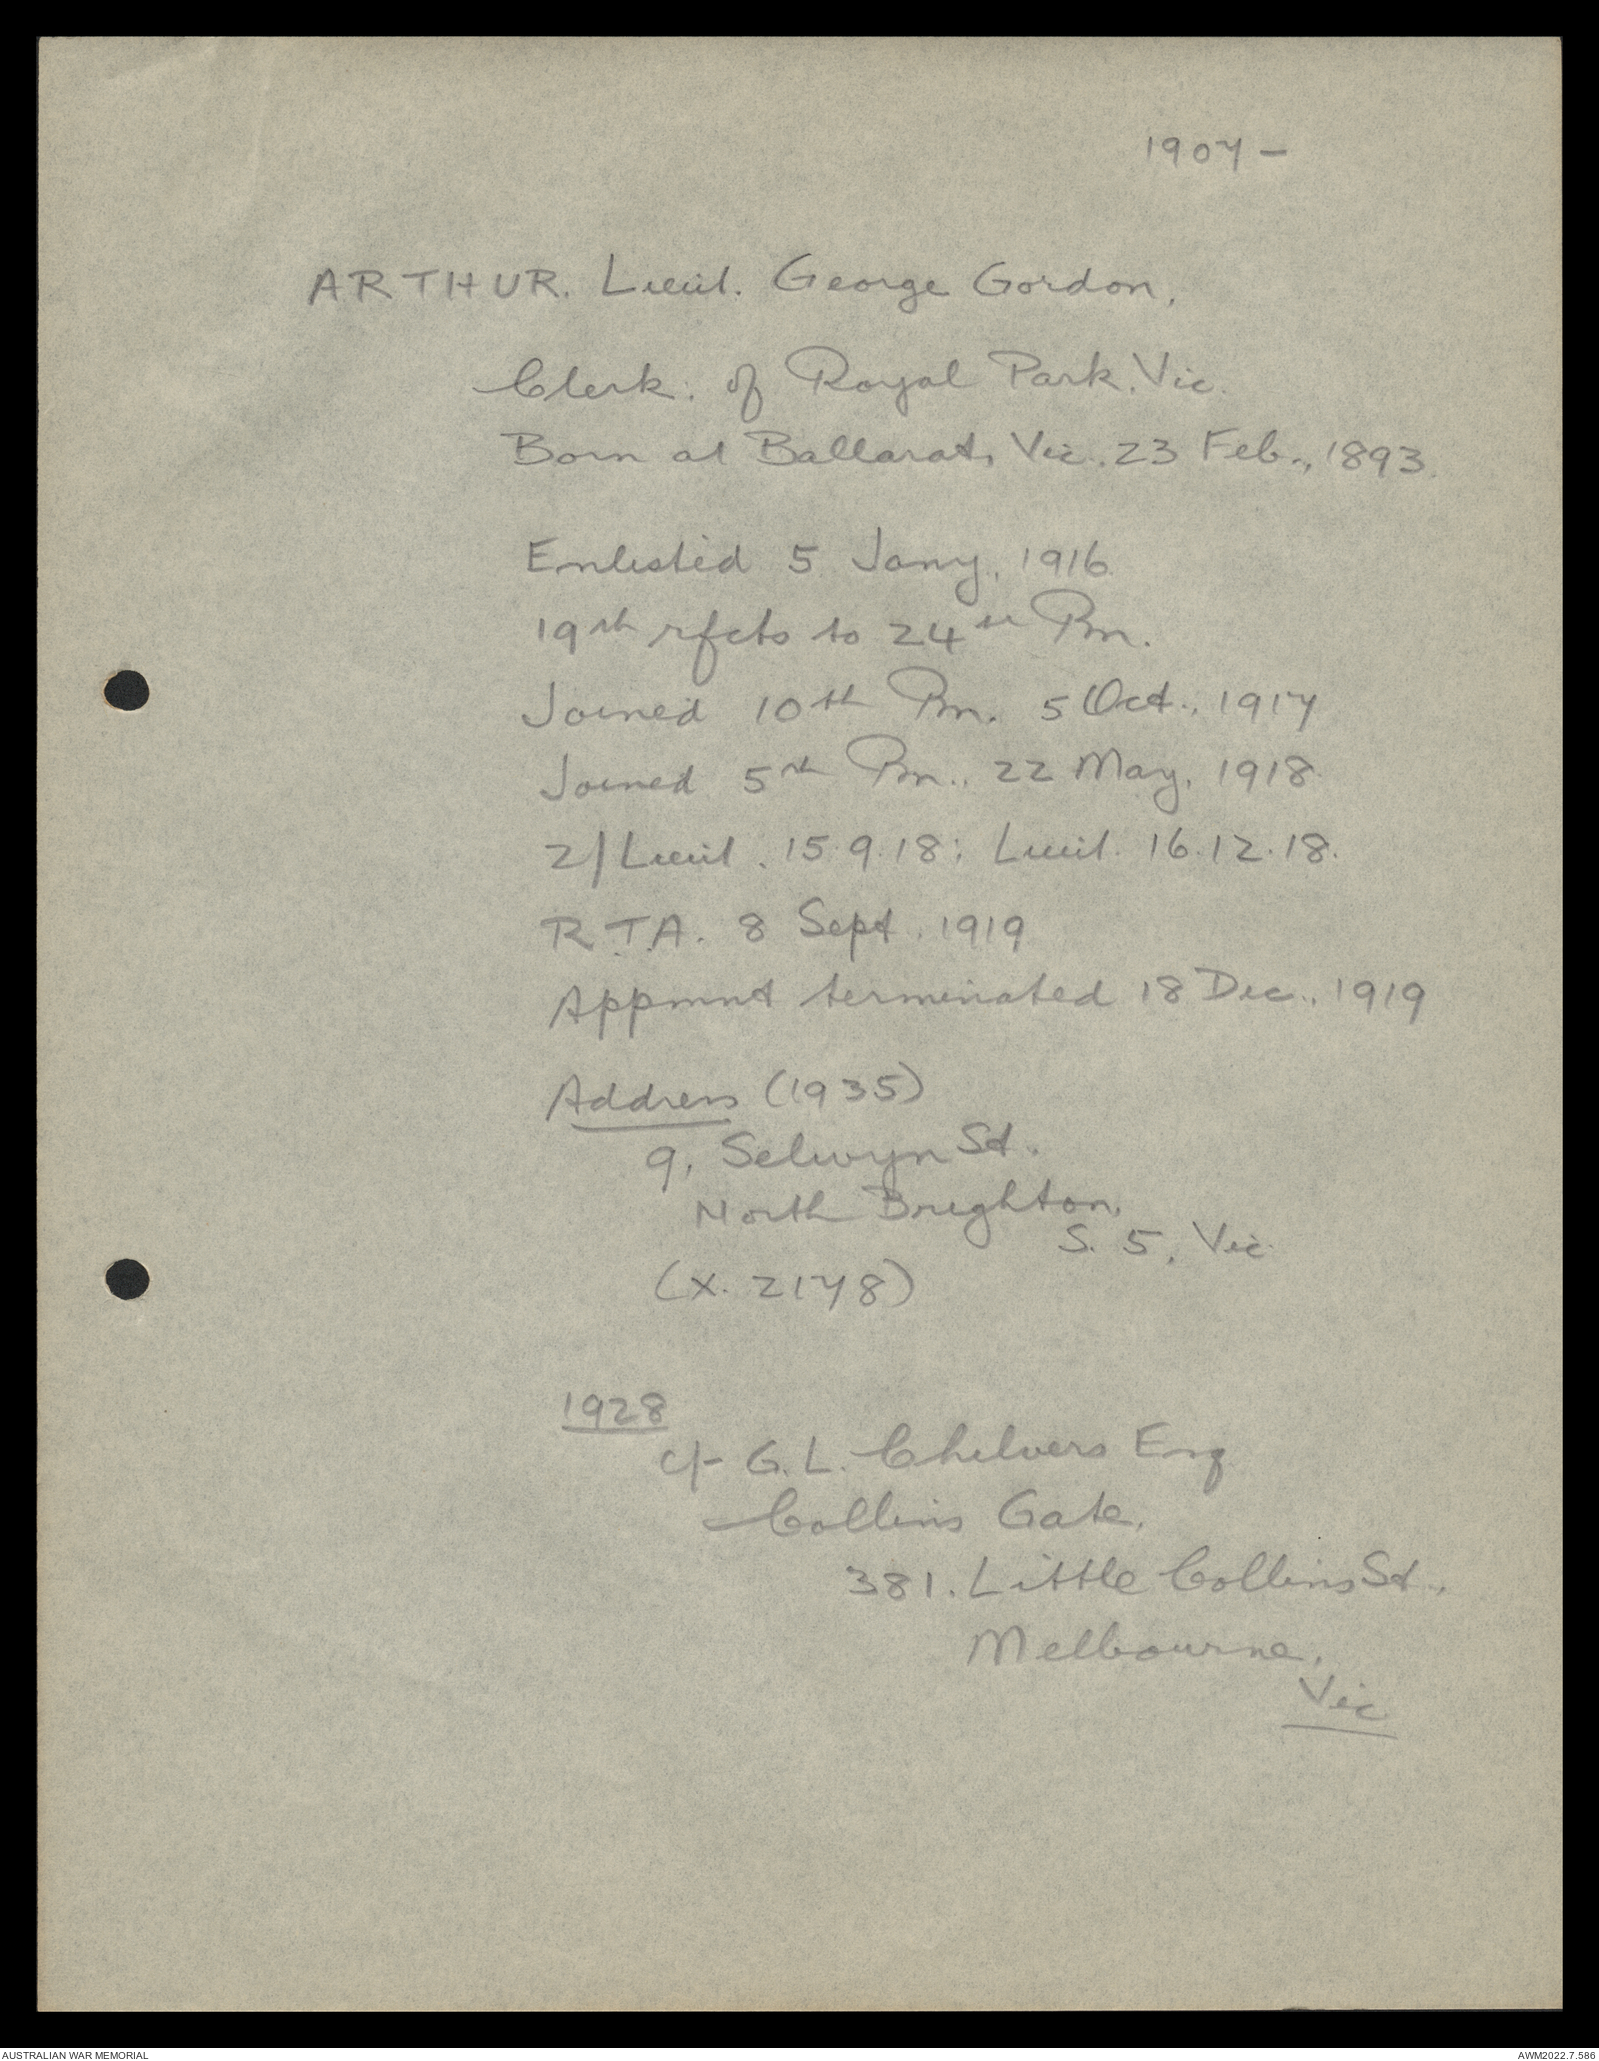 1907 -
ARTHUR. Lieut. George Gordon.
Clerk: of Royal Park. Vic.
Born at Ballarat, Vic. 23 Feb., 1893.
Enlisted 5 Jany, 1916.
19th rfcts to 24th Bn.
Joined 10th Bn. 5 Oct., 1917
Joined 5th Bn., 22 May, 1918.
2/Lieut. 15.9.18; Lieut. 16.12.18.
R.T.A. 8 Sept. 1919
Appmnt terminated 18 Dec., 1919
Address (1935)
9, Selwyn St.
North Brighton,
S. 5, Vic.
(X. 2178)
1928
c/- G. L. Chilvers Esq
Collins Gate,
381. Little Collins St.,
Melbourne,
Vic
AUSTRALIAN WAR MEMORIAL
AWM2022.7.586